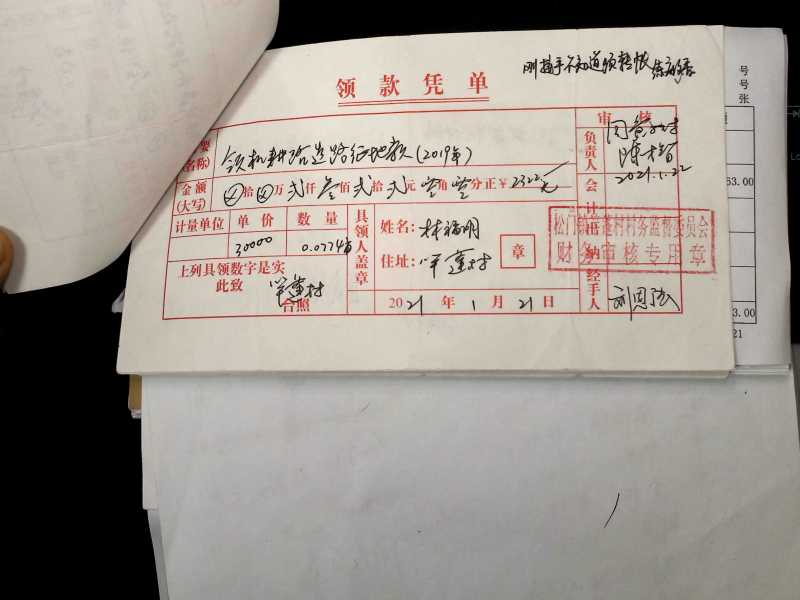 刚接手不知道须转帐
领款凭单
审核
要
(名称)
领机耕路道路征地款(2019年)
负责人
2021.1.22
金额
(大写)
⊗拾⊗万贰仟叁佰贰拾贰元零角零分正¥2322元
会计
出纳
计量单位 单价 数量
30000 0.0774亩
具领人盖章
姓名:林福明
住址:半蓬村
章
上列具领数字是实
此致
半蓬村
台照
2021年1月21日
经手人
刘恩弦
松门镇半蓬村村务监督委员会
财务审核专用章
号
号
张
63.00
3.00
21